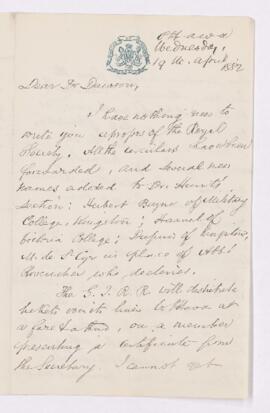 Ottawa
Wednesday,
19th April 1882
Dear Dr Dawson,
I have nothing new to
write you apropos of the Royal
Society. All the circulars have been
forwarded, and several new
names added to Dr. Hunt's
section: Herbert Bayne of Military
College, Kingston; Haanel of
Victoria College; Dupuis of Kingston,
M. de St Cyr in place of Abbé
who declines.
The G. T. R. R. will distribute
tickets on its line to Ottawa at
a fare &
presenting a certificate from
the Secretary. I cannot yet